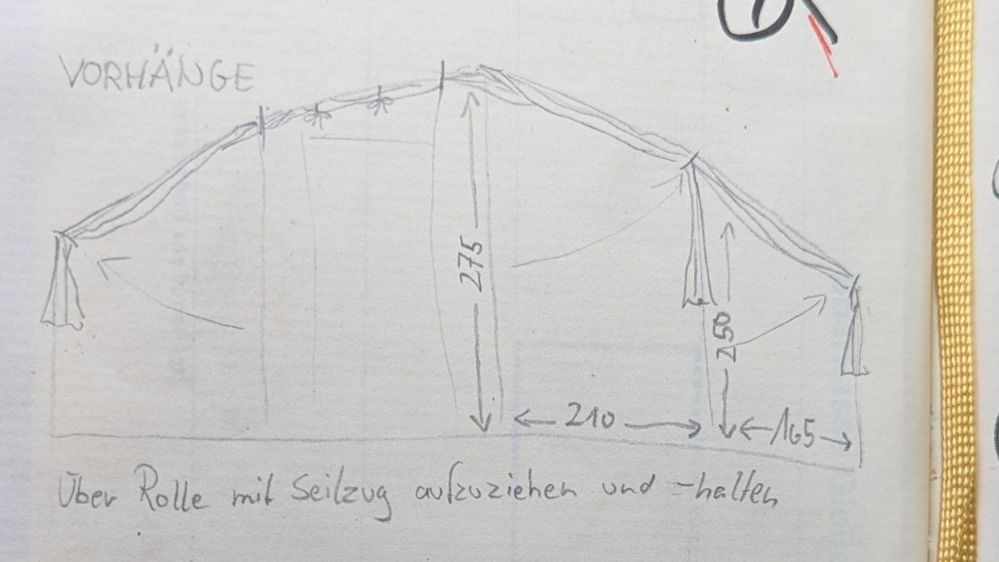 VORHÄNGE
275
250
210
165
Über Rolle mit Seilzug aufzuziehen und -halten